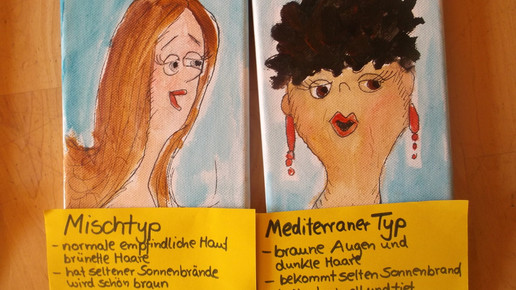 Mischtyp
- normale empfindliche Hauf
brünelle Haare
- hat seltener Sonnenbrände
wird schön braun
Mediterraner Typ
- braune Augen und
dunkle Haare
- bekommt selten Sonnenbrand